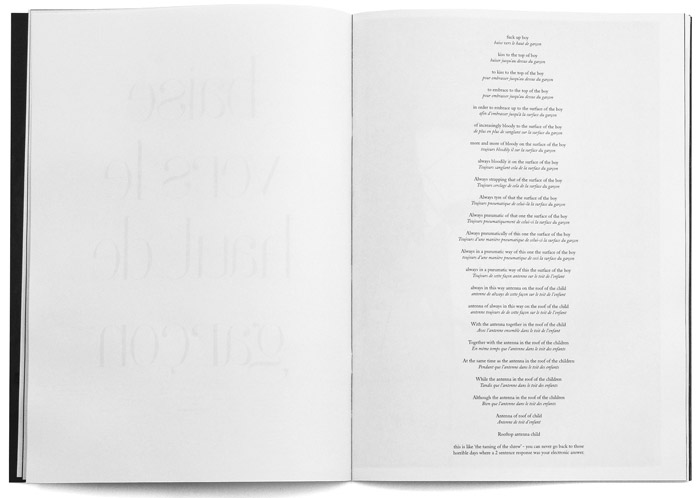 fuck up boy
baise vers le haut de garçon
kiss to the top of boy
baiser jusqu'au dessus du garçon
to kiss to the top of the boy
pour embrasser jusqu'au dessus du garçon
to embrace to the top of the boy
pour embrasser jusqu'au dessus du garçon
in order to embrace up to the surface of the boy
afin d'embrasser jusqu'à la surface du garçon
of increasingly bloody to the surface of the boy
de plus en plus de sanglant sur la surface du garçon
more and more of bloody on the surface of the boy
toujours bloodily il sur la surface du garçon
always bloodily it on the surface of the boy
Toujours sanglant cela de la surface du garçon
Always strapping that of the surface of the boy
Toujours cerclage de cela de la surface du garçon
Always tyre of that the surface of the boy
Toujours pneumatique de celui-là la surface du garçon
Always pneumatic of that one the surface of the boy
Toujours pneumatiquement de celui-ci la surface du garçon
Always pneumatically of this one the surface of the boy
Toujours d'une manière pneumatique de celui-ci la surface du garçon
Always in a pneumatic way of this one the surface of the boy
toujours d'une manière pneumatique de ceci la surface du garçon
always in a pneumatic way of this the surface of the boy
Toujours de cette façon antenne sur le toit de l'enfant
always in this way antenna on the roof of the child
antenne de always de cette façon sur le toit de l'enfant
antenna of always in this way on the roof of the child
antenne toujours de de cette façon sur le toit de l'enfant
With the antenna together in the roof of the child
Avec l'antenne ensemble dans le toit de l'enfant
Together with the antenna in the roof of the child
En même temps que l'antenne dans le toit des enfants
At the same time as the antenna in the roof of the children
Pendant que l'antenne dans le toit des enfants
While the antenna in the roof of the children
Tandis que l'antenne dans le toit des enfants
Although the antenna in the roof of the children
Bien que l'antenne dans le toit des enfants
Antenna of roof of child
Antenne de toit d'enfant
Rooftop antenna child
this is like 'the taming of the shrew' - you can never go back to those
horrible days where a 2 sentence response was your electronic answer.